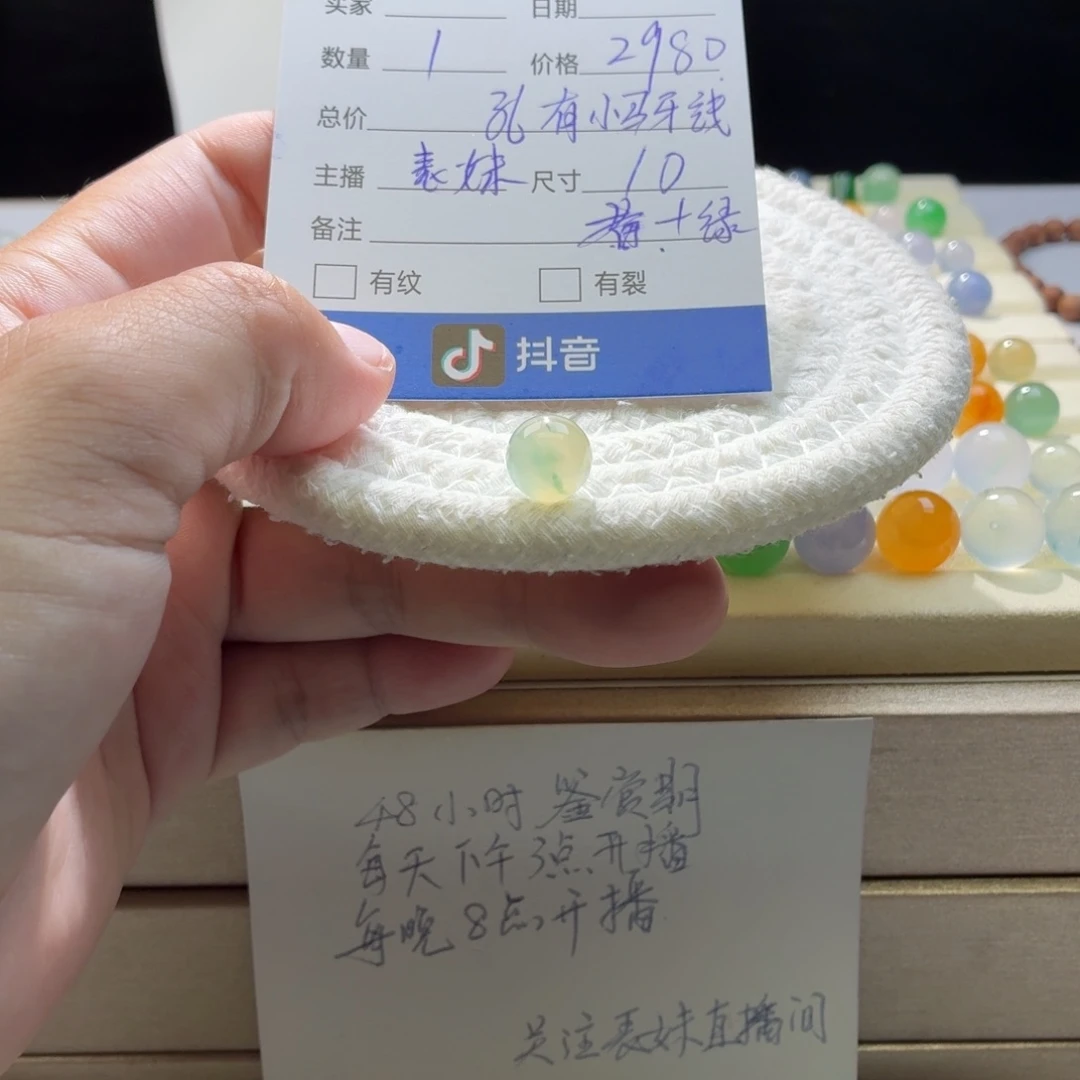 买家 日期
数量 1 价格 2980
总价 孔有小马牙线
主播 表妹 尺寸 10
备注 十绿
有纹 有裂
抖音
48小时鉴赏期
每天下午3点开播
每晚8点开播
关注表妹直播间